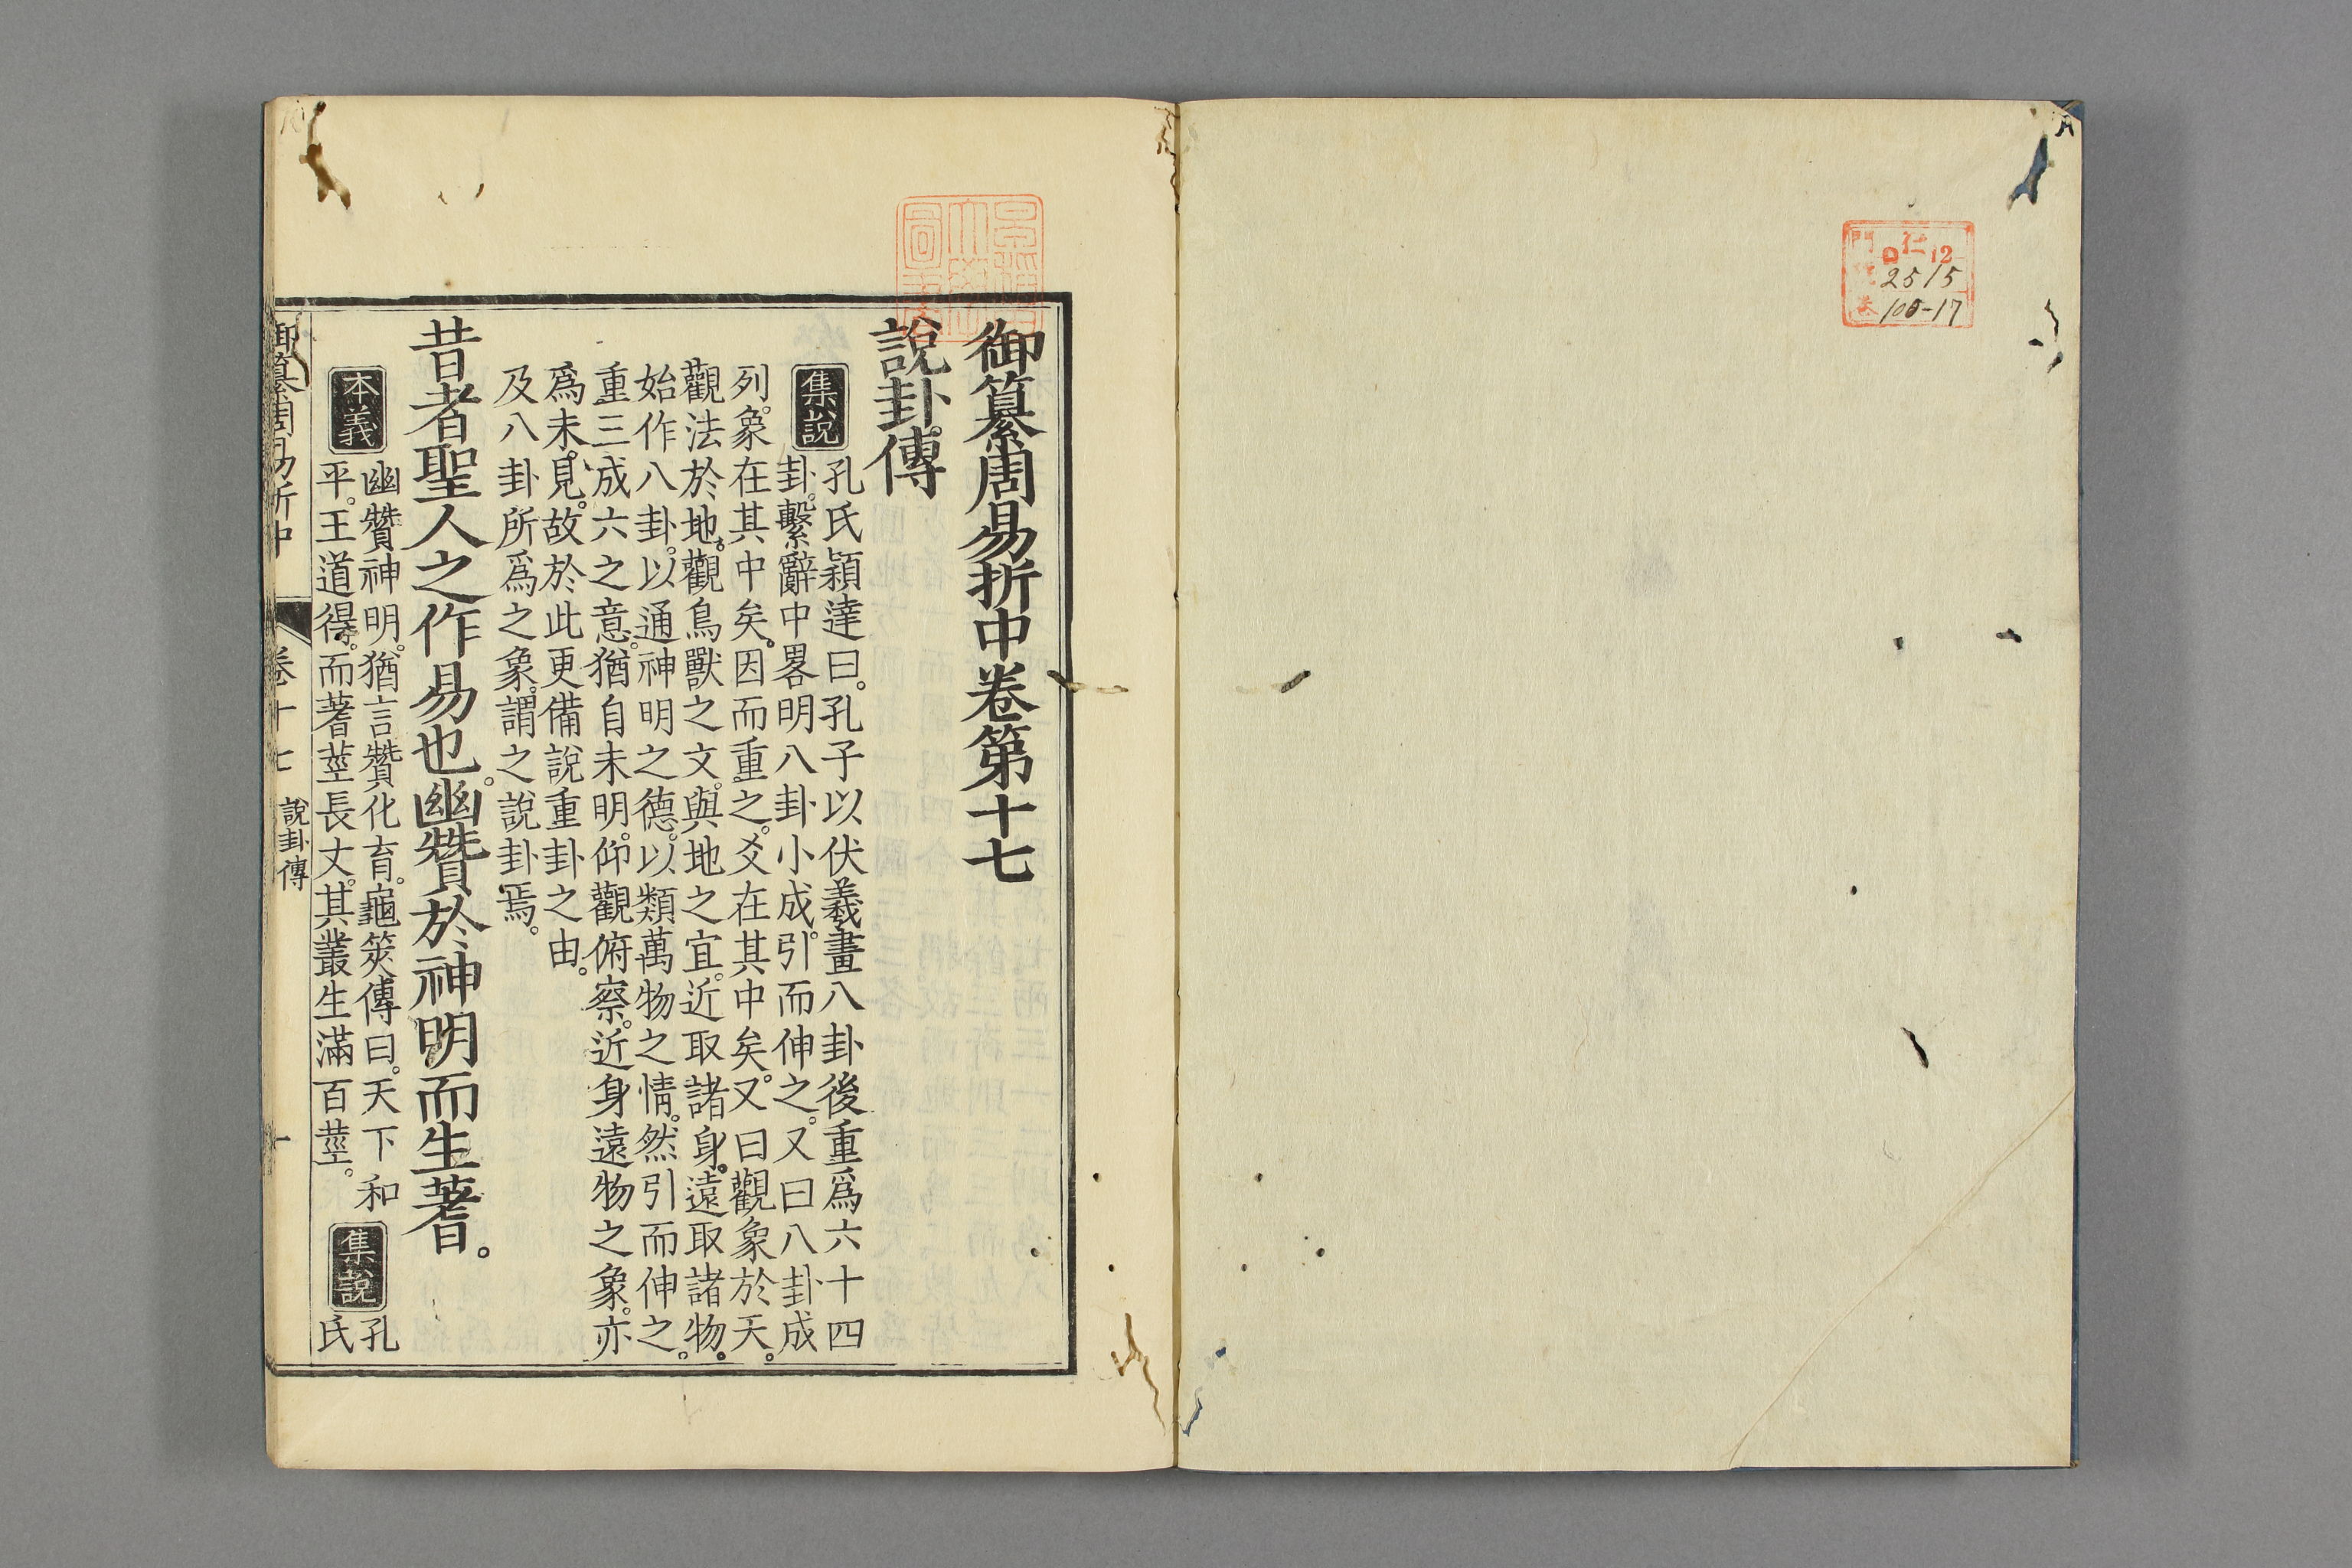 仁
12
門
2515
100-17
御纂周易折中卷第十七
說卦傳
集說
孔氏穎達曰。孔子以伏羲畫八卦後重爲六十四
卦。繫辭中畧明八卦小成。引而伸之。又曰八卦成
列。象在其中矣。因而重之。爻在其中矣。又曰觀象於天。
觀法於地。觀鳥獸之文。與地之宜。近取諸身。遠取諸物。
始作八卦。以通神明之德。以類萬物之情。然引而伸之。
重三成六之意。猶自未明。仰觀俯察。近身遠物之象。亦
爲未見。故於此更備說重卦之由。
及八卦所爲之象。謂之說卦焉。
昔者聖人之作易也。幽贊於神明而生蓍。
本義
幽贊神明。猶言贊化育。龜筴傳曰。天下和
平。王道得。而蓍莖長丈。其叢生滿百莖。
集說
孔
氏
御纂周易折中
卷十七
說卦傳
一